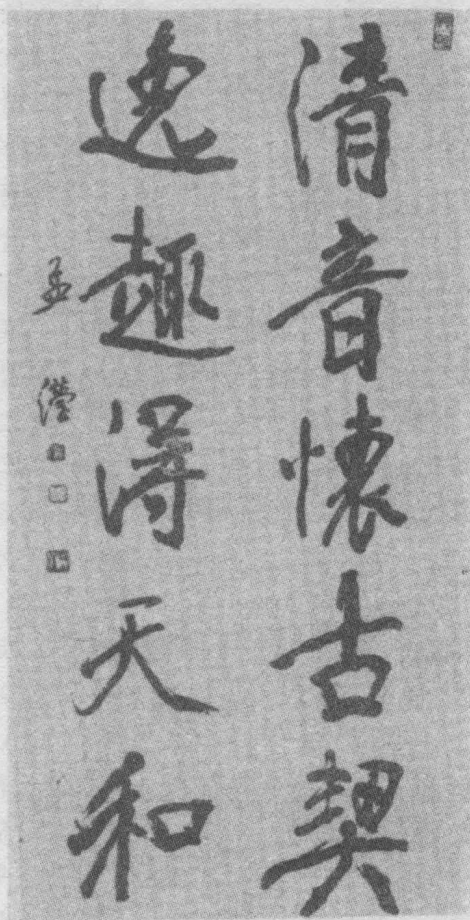 清音懷古契
逸趣得天和
孟瀅